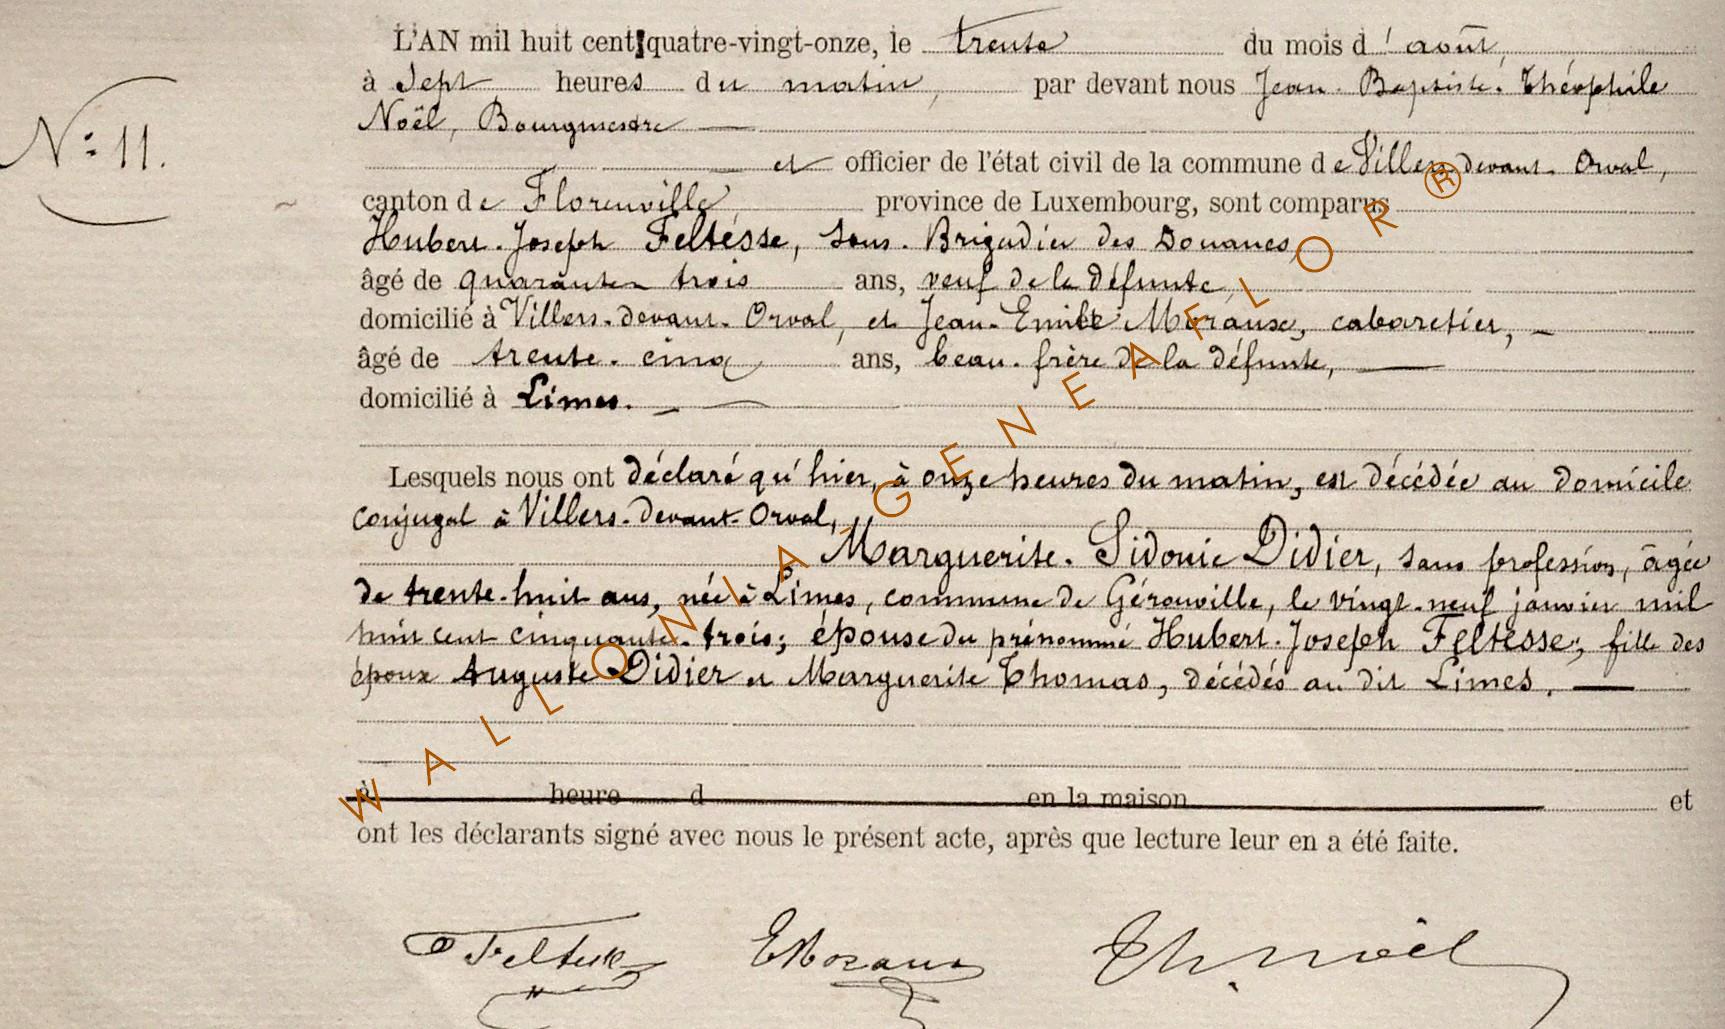 L'AN mil huit cent quatre-vingt-onze, le trente du mois d'août,
à Sept heures du matin, par devant nous Jean-Baptiste-Théophile
Noël, Bourgmestre
N° 11.
et officier de l'état civil de la commune de Villers-devant-Orval,
canton de Florenville province de Luxembourg, sont comparus
Hubert-Joseph Feltesse, Sous-Brigadier des Douanes,
âgé de quarante trois ans, veuf de la défunte,
domicilié à Villers-devant-Orval, et Jean-Emile Moraux, cabaretier,
âgé de trente-cinq ans, beau-frère de la défunte,
domicilié à Limes.
Lesquels nous ont déclaré qu'hier, à onze heures du matin, est décédée au domicile
conjugal à Villers-devant-Orval,
Marguerite-Sidonie Didier, sans profession, âgée
de trente-huit ans, née à Limes, commune de Gérouville, le vingt-neuf janvier mil
huit cent cinquante-trois; épouse du prénommé Hubert-Joseph Feltesse; fille des
époux Auguste Didier et Marguerite Thomas, décédés au dit Limes.
à heure d en la maison et
ont les déclarants signé avec nous le présent acte, après que lecture leur en a été faite.
Feltesse EMoraux Th. Noël
WALLONIA-GENEAFLOR®